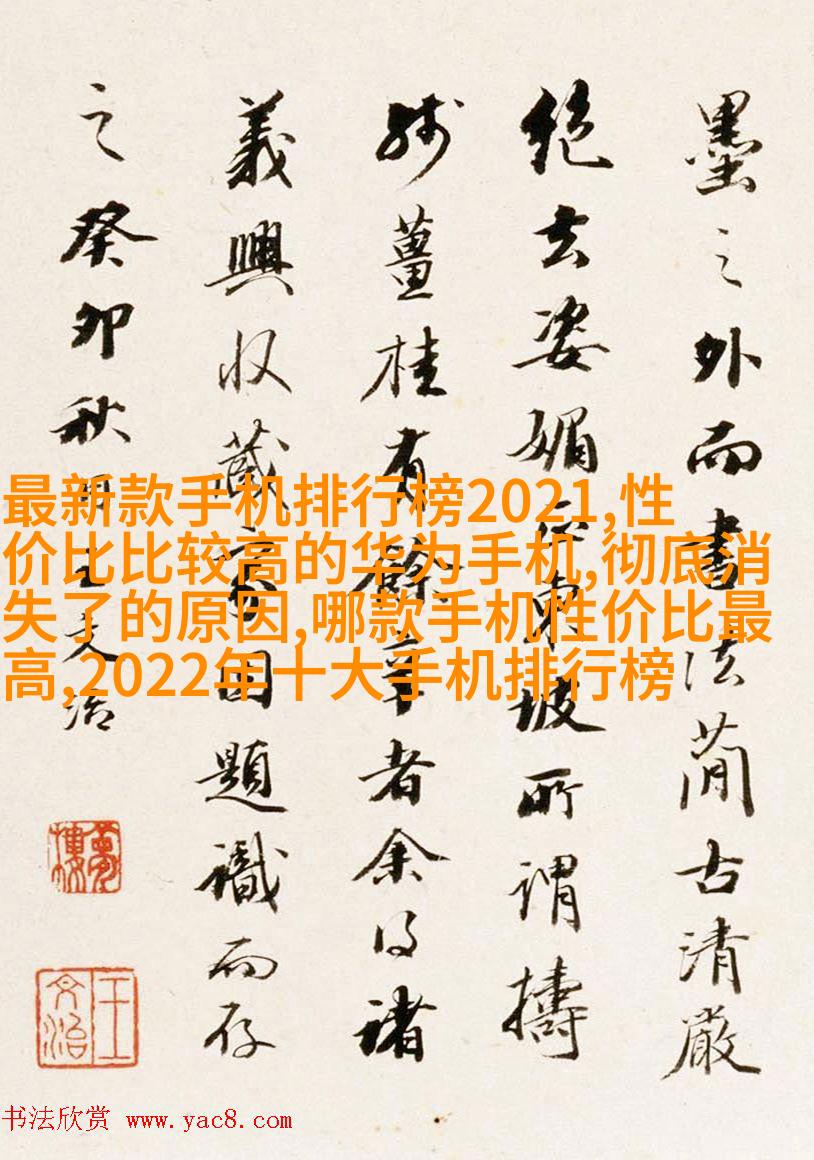 墨之外而書法蕑古清嚴
絶去姿媚正東坡所謂擣
殘薑桂有餘辛者余得諸
義興収藏之家因題識而存
之癸卯秋王文治
夢樓
王文治
最新款手机排行榜2021,性
价比比较高的华为手机,彻底消
失了的原因,哪款手机性价比最
高,2022年十大手机排行榜
书法欣赏 www.yac8.com